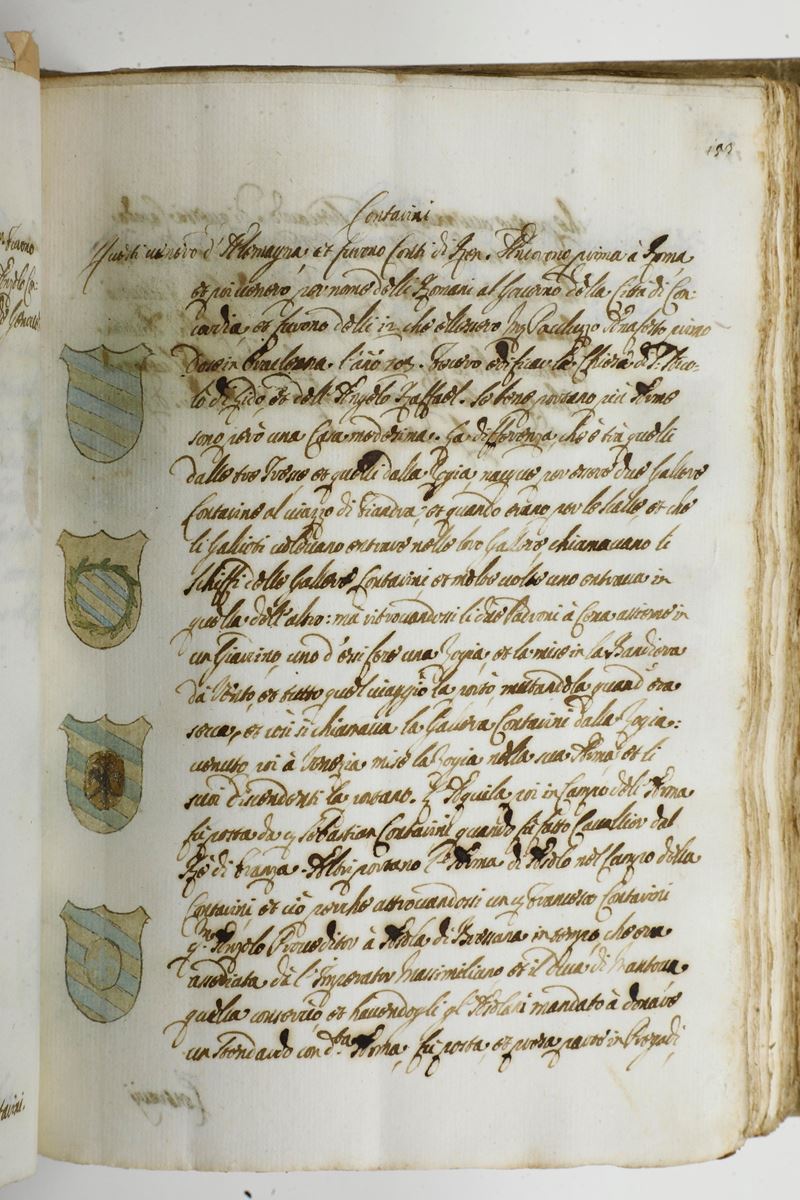 Contarini
Questi venero d'Alemagna, et furono Conti di Ren. Andorono prima à Roma
et poi venero, per nome delli Romani al Governo della Città di Con-
cordia, et furono delli 12 che ellessero Paoluzzo Anafesto primo
Dose in Eracleana. l'año Fecero edificar la Chiesa di S. Nico-
lò di Lido, et dell'Angelo Raffael. Se bene portano più Arme
sono però una Casa medesima. La differenza, che è trà quelli
dalle tre Fresse et quelli dalla Zogia nacque per essere due Gallere
Contarine al viazzo di Fiandra, et quando erano per le scalle, et che
li Gallioti volevano entrare nelle loro Gallere chiamavano li
schiffi delle Gallere Contarini, et molte volte uno entrava in
quella dell'altro: mà ritrovandosi li due Padroni à Cena assieme in
un Giardino, uno d'essi fece una Zogia, et la mise in la Bandiera
dà Vento, et tutto quel viaggio la portò, mutandola quand'era
secca, et così si chiamava la Gallera Contarini dalla Zogia:
venuto poi à Venezia mise la Zogia nella sua Arma et li
suoi discendenti la portano. L'Aquila poi in Campo dell'Arma
fù posta da q Sebastian Contarini quando fù fatto Cavallier dal
Rè di Franza. Altri portano l'Arma di Asolo nel Campo della
Contarini, et ciò perche attrovandosi un q Francesco Contarini
q.m Angelo Proveditor à Asola di Bressana in tempo, che era
assediata dà l'Imperator Massimiliano et il Duca di Mantova,
quella conservò et havendogli gl'Asolani mandato à donare
un stendardo con d.ta Arma, fù posta, et presa parte in Pregadi,